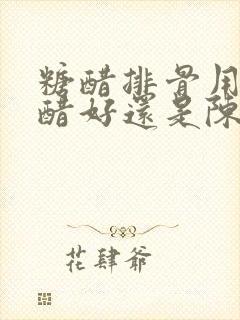 糖醋排骨用
醋好還是陳
花肆爺